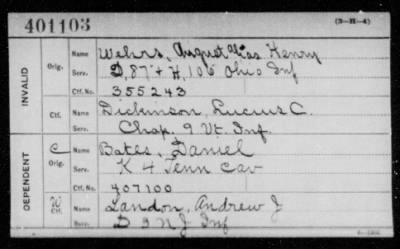 401103
(3-H-4)
INVALID
Orig.
Name Wehrs, August alias Henry
Serv. D, 87 & H, 106 Ohio Inf
Ctf. No. 355243
Ctf.
Name Dickinson, Lucius C.
Serv. Chap. 9 Vt. Inf.
DEPENDENT
C
Orig.
Name Bates, Daniel
Serv. K 4 Tenn Cav
Ctf. No. 407100
W
Ctf.
Name Landon, Andrew J
Serv. D 3 N J Inf